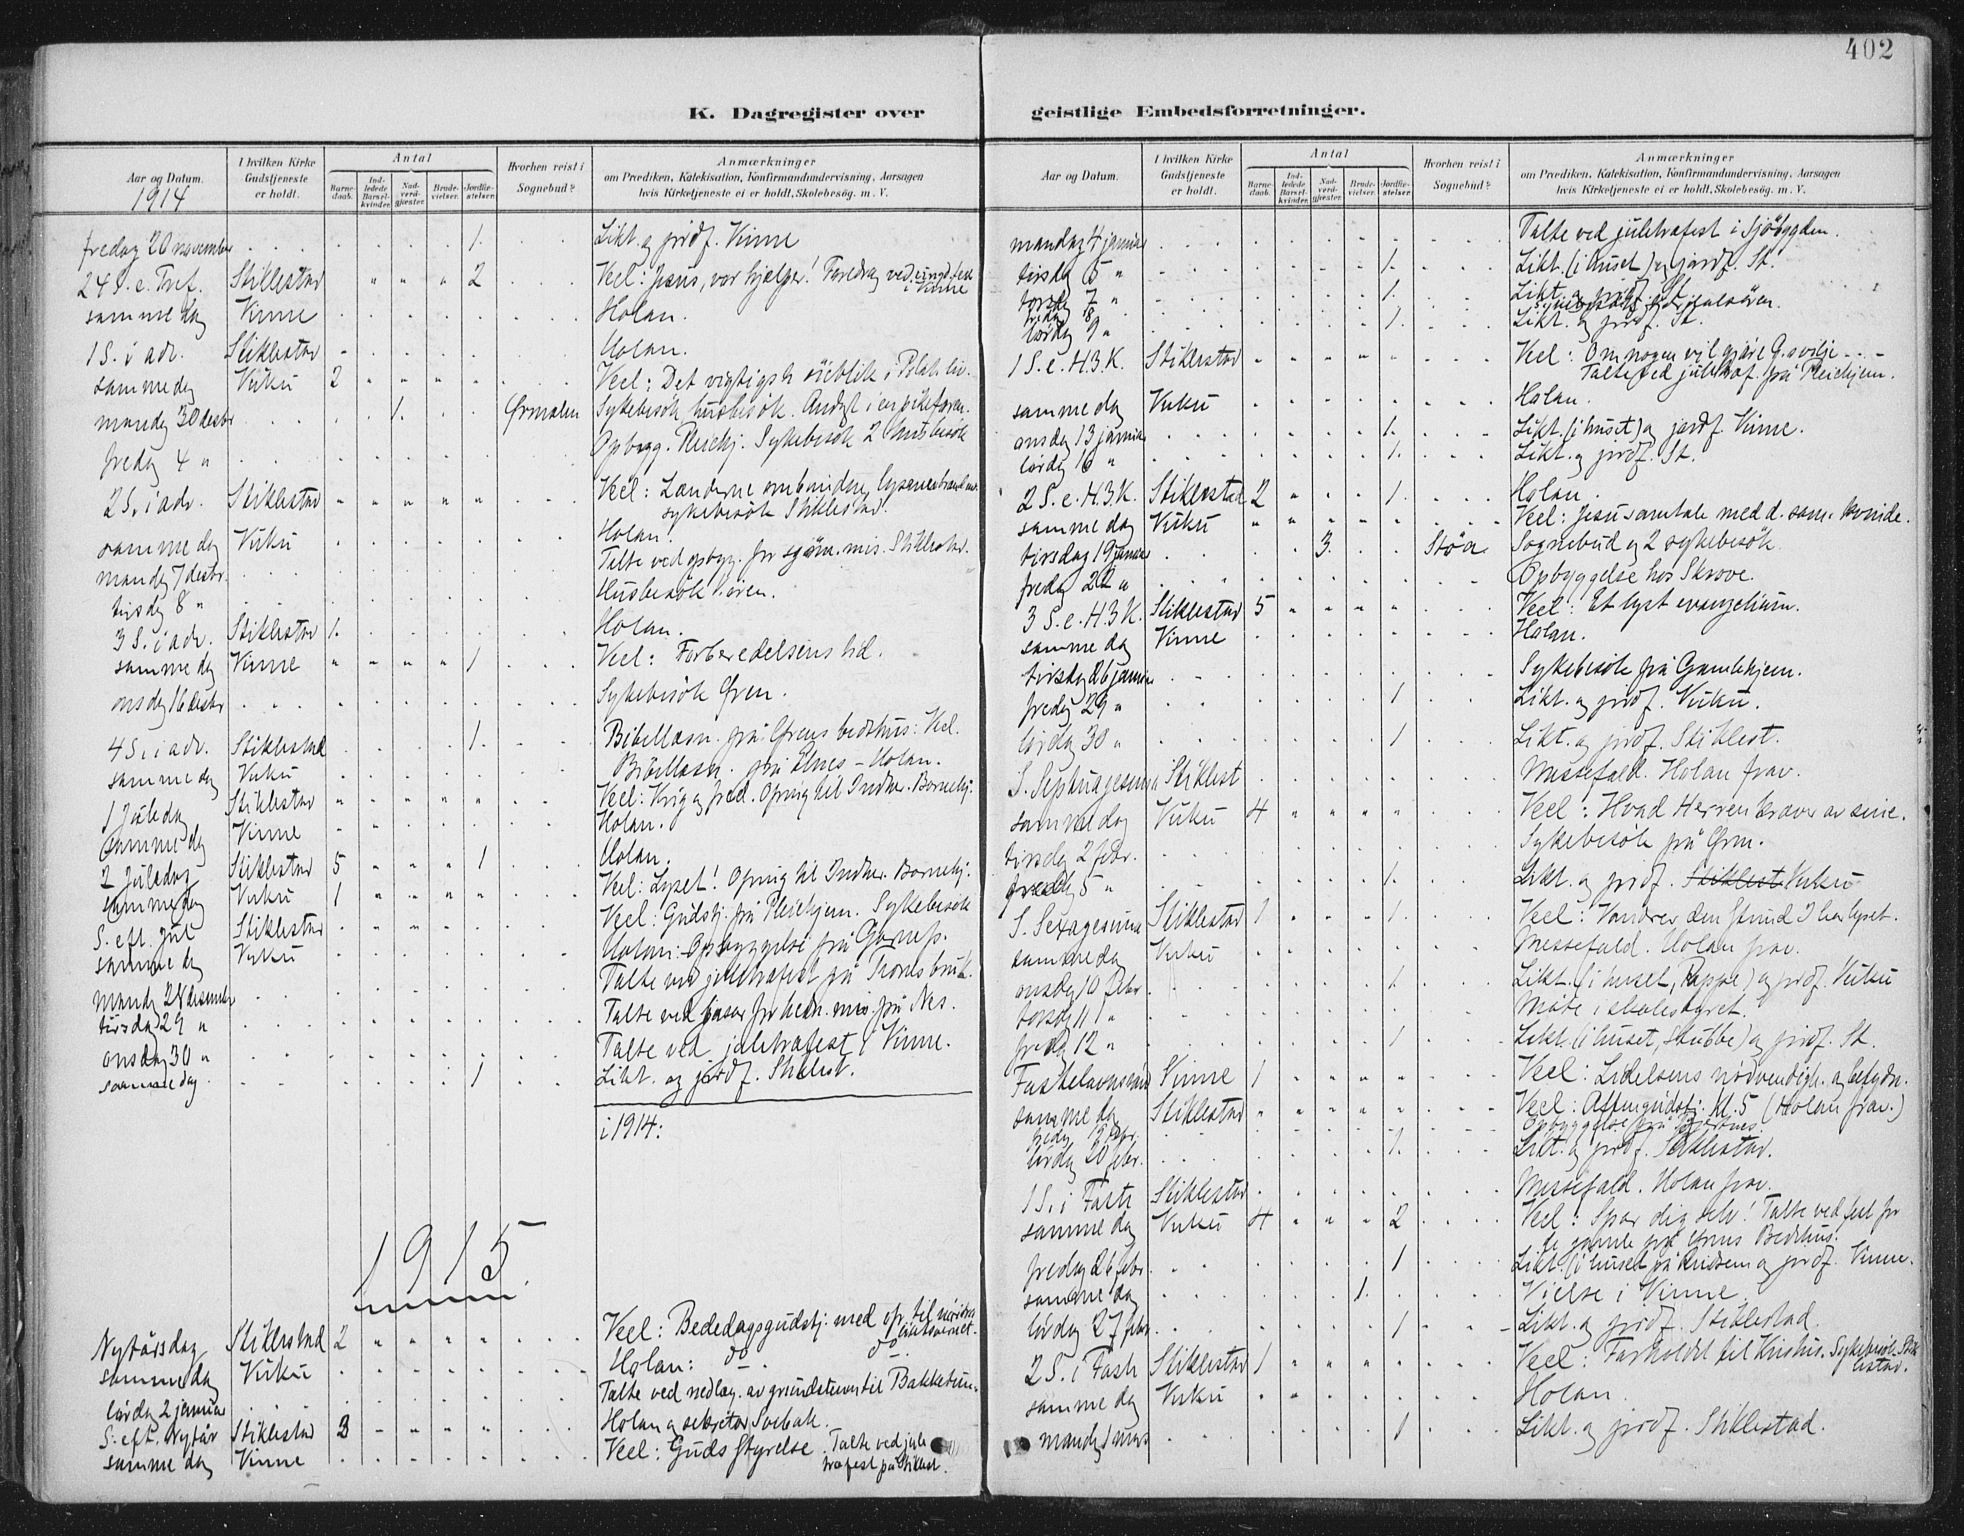 402
K. Dagregister over
Aar og Datum.
1914
I hvilken Kirke Gudstjeneste er holdt.
Antal
Barnedaab.
Indledede Barselkvinder.
Nadverdgjæster.
Brudevielser.
Jordfæstelser.
Hvorhen reist i Sognebud?
Anmærkninger
om Prædiken, Katekisation, Konfirmandundervisning, Aarsagen
hvis Kirketjeneste ei er holdt, Skolebesøg. m. V.
fredag 20 november 1. Likt. og jordf. Vinne
24 S. e. Tref. Stiklestad " " " 2 Veel: Jesus, vor hjælper! Foredrag ved ungd.
i Vinne
samme dag Vinne Holan.
1 S. i adv. Stiklestad Holan.
samme dag Vuku 2 " " " Veel: Det vigtigste öieblik i Pilati liv.
mandag 30 1. Ørmelen Sykebesök husbesök.
fredag 4 " Opbygg. Pleiehj. Sykebesök 2 husbesök
2 S. i adv. Stiklestad " " " " " Veel:
sykebesök Stiklestad.
samme dag Vuku Holan.
mandag 7 desbr. Talte ved opbyg. for sjöm. mis. Stiklestad.
tirsdag 8 " Husbesök
3 S. i adv. Stiklestad 1. Holan.
samme dag Vinne " " " " 1 Veel: Forberedelsens tid.
onsdag 16 desbr Sykebesök Ören.
4 S. i adv. Stiklestad 1. Bibellæsn. på Ørens bedehus: Veel.
samme dag Vuku Bibellæsn. på Elnes – Holan.
1 Juledag Stiklestad " " " " " Veel: Krig og fred. Opring til Indher. Barnehj.
samme dag Vinne Holan.
2 Juledag Stiklestad 5 " " " 1 Holan.
samme dag Vuku 1 " " " " Veel: Lyset! Opring til Indher. Barnehj.
S. eft. Jul Stiklestad Veel: Gudstj. på Pleiehjem. Sykebesök
samme dag Vuku Holan: Opbyggelse på
mandag 28 desember Talte ved juletræfest på Trones bruk.
tirsdag 29 " Talte ved basar for hedn. mis. på Nes.
onsdag 30 " Talte ved juletræfest i Vinne.
samme dag 1 Likt. og jordf. Stiklest.
i 1914:
1915
Nytårsdag Stiklestad 2 " " " " Veel: Bededagsgudstj. med op. til
samme dag Vuku Holan: do do
lördag 2 januar Talte ved nedlæg. av grundstenen til Bakketun.
S. eft. Nytår Stiklestad 3 " " " " Holan og sekretær Svebak.
samme dag Vinne Veel: Guds styrelse. Talte ved jule
træfest på Stiklest.
geistlige Embedsforretninger.
Aar og Datum.
I hvilken Kirke Gudstjeneste er holdt.
Antal
Barnedaab.
Indledede Barselkvinder.
Nadverdgjæster.
Brudevielser.
Jordfæstelser.
Hvorhen reist i Sognebud?
Anmærkninger
om Prædiken, Katekisation, Konfirmandundervisning, Aarsagen
hvis Kirketjeneste ei er holdt, Skolebesøg. m. V.
mandag 4 januar Talte ved juletræfest i Sjöbygden.
tirsdag 5 " 1. Likt. (i huset) og jordf. St.
torsdag 7 " 1. Likt. og jordf. St.
fredag 8
lördag 9 " 1. Likt. og jordf. St.
1 S. e. H.3.K. Stiklestad " " " " " Veel: Om nogen vil gjöre G.s vilje - - -
Talte ved juletræf. på Pleiehjem.
samme dag Vuku Holan.
onsdag 13 januar 1. Likt. (i huset) og jordf. Vinne.
lördag 16 " 1. Likt. og jordf. St.
2 S. e. H.3.K. Stiklestad 2 " 1. Holan.
samme dag Vuku " " " " " Veel: Jesu samtale med d. sam. kvinde.
tirsdag 19 januar 3. Stöa Sognebud og 2 sykebesök.
fredag 22 " Opbyggelse hos Skrove.
3 S. e. H.3K. Stiklestad 5 " " " " Veel: Et lyst evangelium.
samme dag Vinne Holan.
tirsdag 26 januar Sykebesök på Gamlehjem.
fredag 29 " 1 Likt. og jordf. Vuku.
lördag 30 " 1 Likt. og jordf. Stiklest.
S. Septuagesima Stiklest Messefald. Holan frav.
samme dag Vuku 4 " " " " Veel: Hvad Herren kræver av sine.
tirsdag 2 febr. Sykebesök på Ören.
fredag 5 " 1. Likt. og jordf. Stiklest Vuku
S. Sexagesima Stiklestad 1 " " " 1. Veel: Vandrer den stund I har lyset.
samme dag Vuku Messefald. Holan frav.
onsdag 10 febr. 1. Likt. (i huset, Rappe) og jordf. Vuku
torsdag 11 " Möte i skolestyret.
fredag 12 " 1 Likt. (i huset, Stubbe) og jordf. St.
Fastelavnssönd Vinne 1 " " " " Veel: Lidelsens nödvendigh. og betydn.
samme dag Stiklestad " " " " " Veel: Aftengudstj. kl. 5 (Holan frav.)
fredag 19 febr. Opbyggelse på
lördag 20 febr. 1. Likt. og jordf. Stiklestad.
1 S. i Faste Stiklestad Messefald. Holan frav.
samme dag Vuku 4 " " " 2 Veel: Spar dig selv! Talte ved fest for
de gamle på Ørens Bedehus.
fredag 26 febr. 1 Likt. (i huset på og jordf. Vinne.
samme dag 1. Vielse i Vinne
lördag 27 febr. 1 Likt. og jordf. Stiklestad.
2 S. i Faste Stiklestad 1 " " " " Veel: Forholdet til Kristus. Sykebesök Stik
lestad.
samme dag Vuku Holan.
mandag 1 mars 1 Likt. og jordf. Stiklestad.